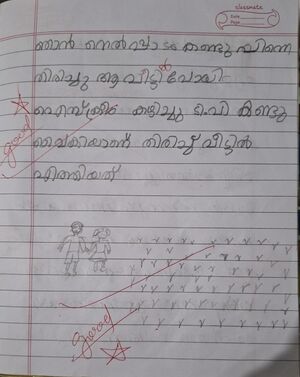 classmate
Date
Page
ഞാൻ നെൽപ്പാടം കണ്ടു പിന്നെ
തിരിച്ചു ആ വീട്ടിൽ പോയി
ഐസ്ക്രീം കഴിച്ചു ടി.വി കണ്ടു
വൈകിയാണ് തിരിച്ച് വീട്ടിൽ
എത്തിയത്
good
good